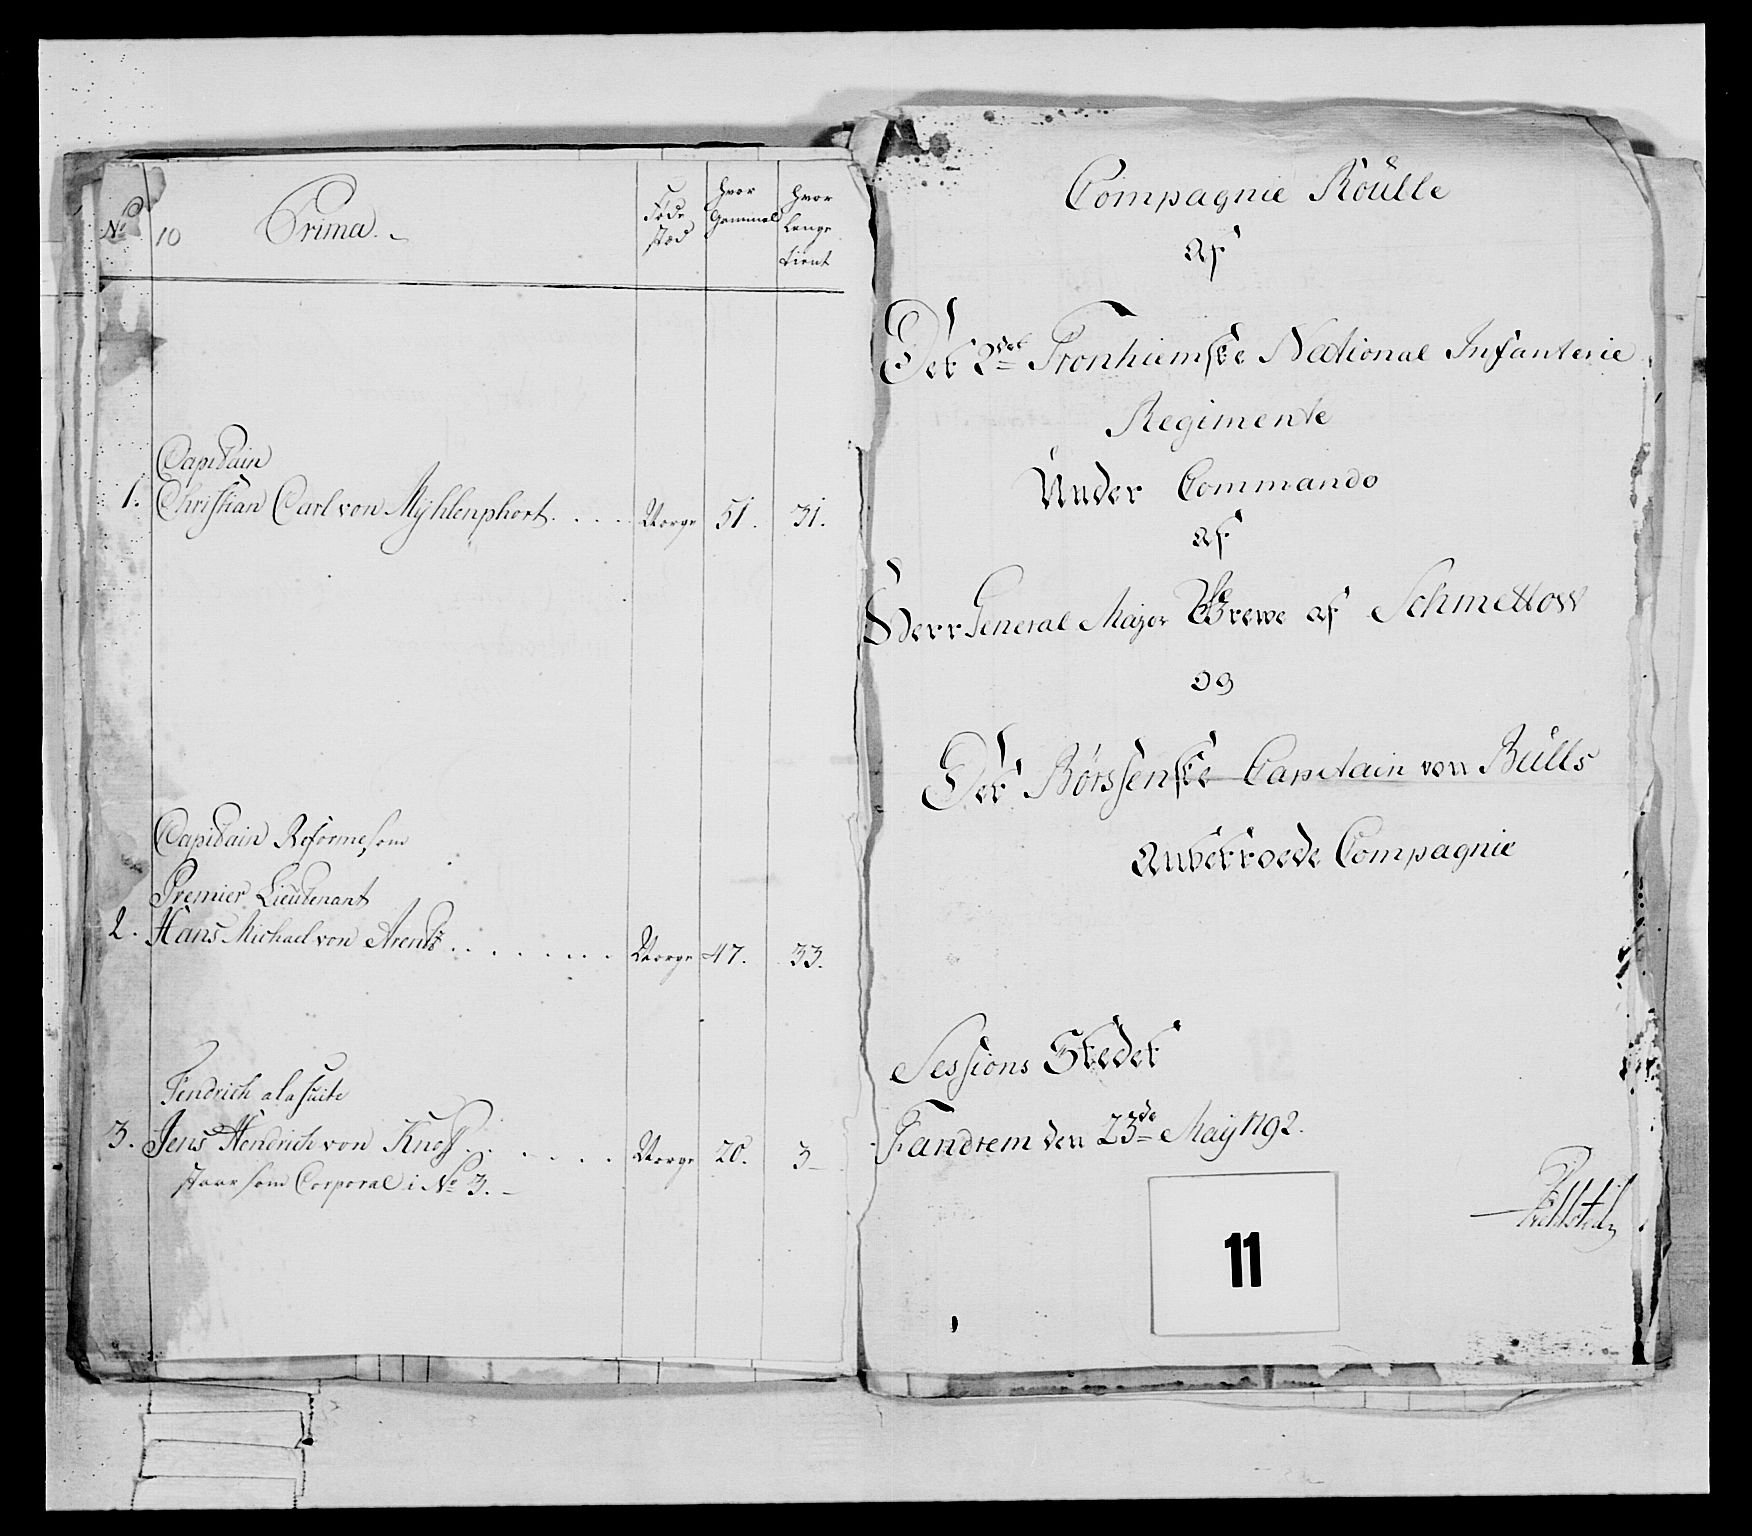 No 10 Prima. Føde stæd Hvor Gammel Hvor Lenge tient
Capitain
1. Christian Carl von Mÿhlenphort . . . . Norge 51. 31.
Capitain Reforme, som
Premier Lieutenant
2. Hans Michael von Arentz . . . . . . . Norge 47. 33.
Fendrich ala suite
3. Jens Hendrich von Knoff . . . . . . Norge 20. 3
staar som Corporal i No 3.
Compagnie Roulle
af
Det 2det Tronhiemske National Infanterie
Regimente
Under Commando
af
Herr General Major Grewe af Schmettow
og
Det Børssenske Capitain von Bülls
Anbetroede Compagnie
Sessions Stedet
Fandrem den 23de Maÿ 1792.
11